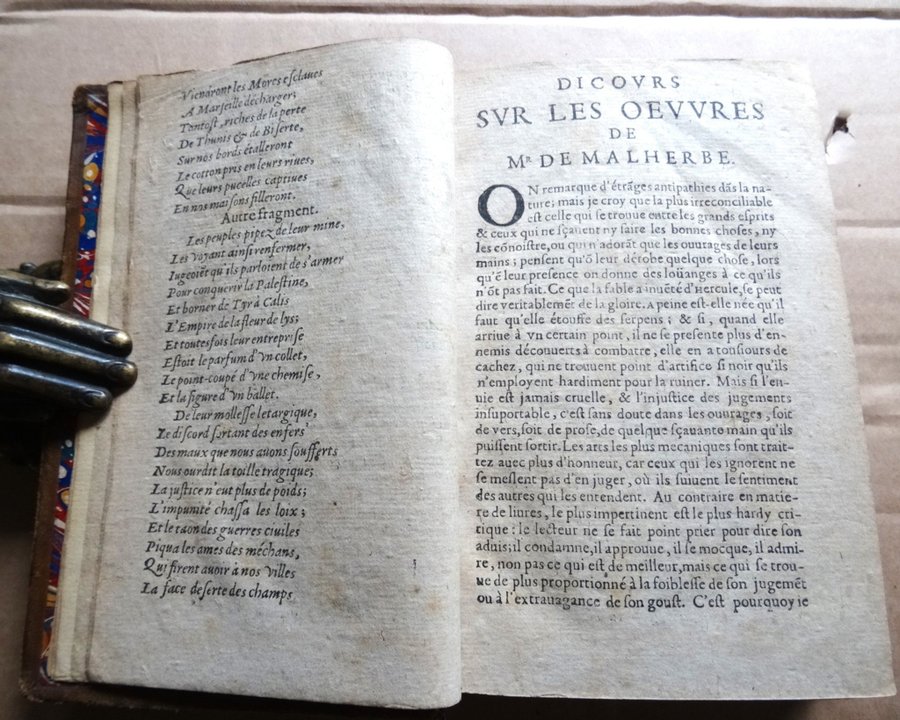 Viendront les Mores esclaves
A Marseille décharger;
Tantost, riches de la perte
De Thunis & de Biserte,
Sur nos bords étalleront
Le cotton pris en leurs rives,
Que leurs pucelles captives
En nos maisons filleront.
Autre fragment.
Les peuples pipez de leur mine,
Les voyant ainsi renfermer,
Iugeoiẽt qu'ils parloient de s'armer
Pour conquerir la Palestine,
Et borner de Tyr à Calis
L'Empire de la fleur de lys;
Et toutesfois leur entreprise
Estoit le parfum d'vn collet,
Le point-coupé d'vne chemise,
Et la figure d'vn ballet.
De leur mollesse letargique,
Le discord sortant des enfers
Des maux que nous avons soufferts
Nous ourdit la toille tragique;
La justice n'eut plus de poids;
L'impunité chassa les loix;
Et le taon des guerres civiles
Piqua les ames des méchans,
Qui firent avoir à nos villes
La face deserte des champs
DICOVRS
SVR LES OEVVRES
DE
MR. DE MALHERBE.
ON remarque d'étrãges antipathies dãs la na-
ture; mais je croy que la plus irreconciliable
est celle qui se trouue entre les grands esprits
& ceux qui ne sçauent ny faire les bonnes choses, ny
les cõnoistre, ou qui n'adorãt que les ouvrages de leurs
mains; pensent qu'õ leur dérobe quelque chose, lors
qu'ẽ leur presence on donne des loüanges à ce qu'ils
n'õt pas fait. Ce que la fable a inuẽté d'Hercule, se peut
dire veritablemẽt de la gloire. A peine est-elle née qu'il
faut qu'elle étouffe des serpens; & si, quand elle
arriue à vn certain point, il ne se presente plus d'en-
nemis découuerts à combatre, elle en a tousiours de
cachez, qui ne trouuent point d'artifice si noir qu'ils
n'employent hardiment pour la ruiner. Mais si l'en-
uie est jamais cruelle, & l'injustice des jugements
insuportable, c'est sans doute dans les ouvrages, soit
de vers, soit de prose, de quelque sçauante main qu'ils
puissent sortir. Les arts les plus mecaniques sont trait-
tez auec plus d'honneur, car ceux qui les ignorent ne
se meslent pas d'en juger, où ils suiuent le sentiment
des autres qui les entendent. Au contraire en matie-
re de liures, le plus impertinent est le plus hardy cri-
tique: le lecteur ne se fait point prier pour dire son
aduis; il condamne, il approuue, il se mocque, il admi-
re, non pas ce qui est de meilleur, mais ce qui se trou-
ue de plus proportionné à la foiblesse de son jugemẽt
ou à l'extrauagance de son goust. C'est pourquoy ie